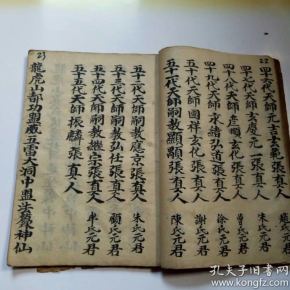 四十六代天師元吉玄範張真人
四十七代天師玄慶元一張真人 朱氏元君
四十八代天師彥頨玄化張真人
四十九代天師永緒弘道張真人 徐氏元君
五十代天師國祥玄化張真人 謝氏元君
五十一代天師嗣教顯顯張真人 陳氏元君
五十二代天師嗣教應京張真人 朱氏元君
五十三代天師嗣教弘任張真人 顧氏元君
五十四代天師嗣教繼宗張真人 車氏元君
五十五代天師振麟張真人
龍虎山都功盟威三童大洞中盟朱籙神仙
孔夫子旧书网